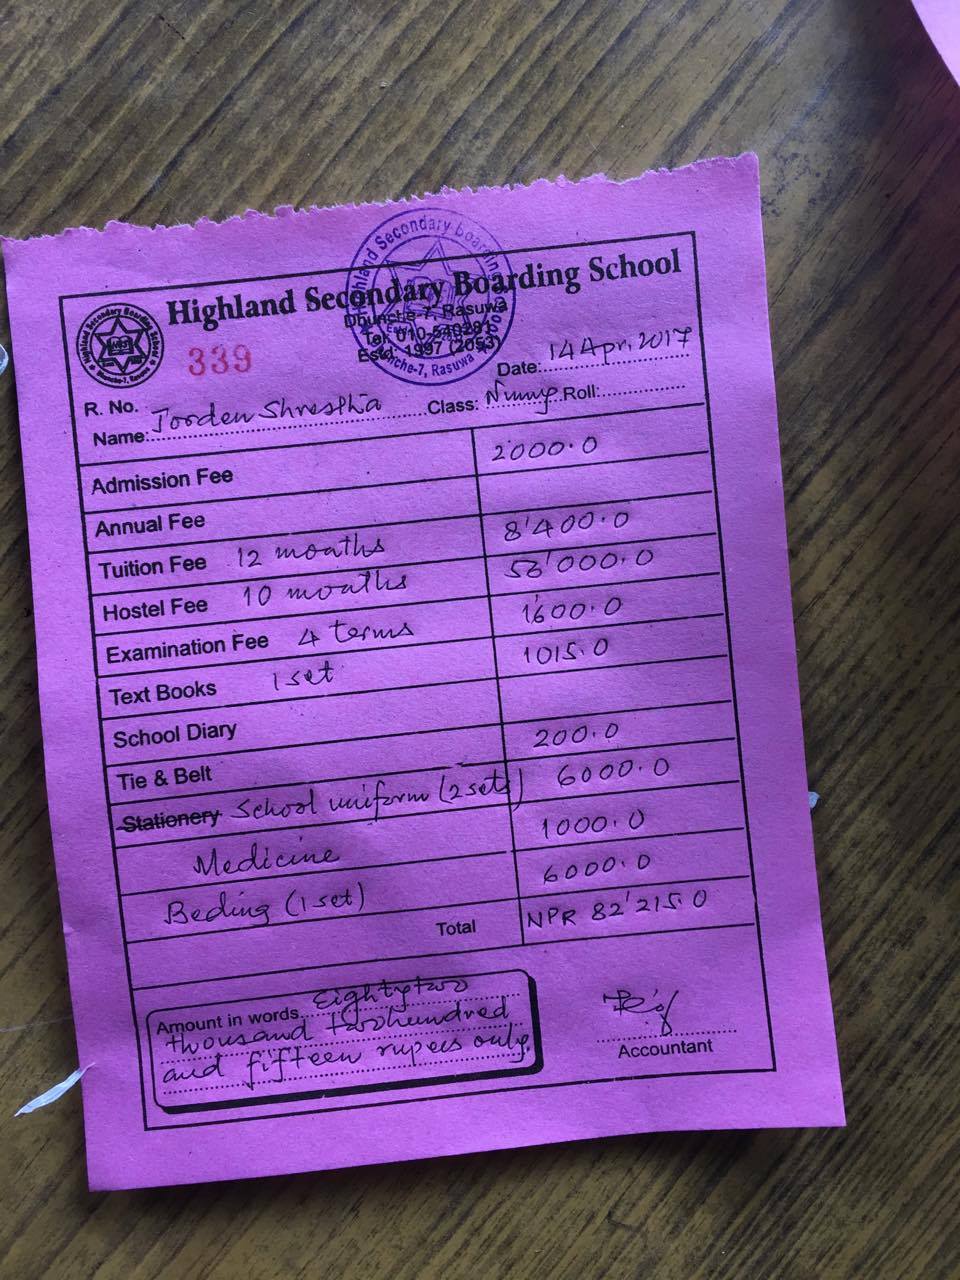 Highland Secondary Boarding School
Dhunche-7, Rasuwa
Tel: 010-540291
Estd. 1997 (2053)
339
R. No.
Date: 14 Apr. 2017
Name: Shrestha Class: Roll:
Admission Fee 2000.0
Annual Fee
Tuition Fee 12 months 8'400.0
Hostel Fee 10 months 56'000.0
Examination Fee 4 terms 1'600.0
Text Books 1 set 1015.0
School Diary
Tie & Belt 200.0
Stationery School uniform (2 sets) 6000.0
Medicine 1000.0
Beding (1 set) 6000.0
Total NPR 82'215.0
Amount in words Eightytwo
thousand two hundred
and fifteen rupees only.
Accountant
Highland Secondary Boarding School
Dhunche-7, Rasuwa